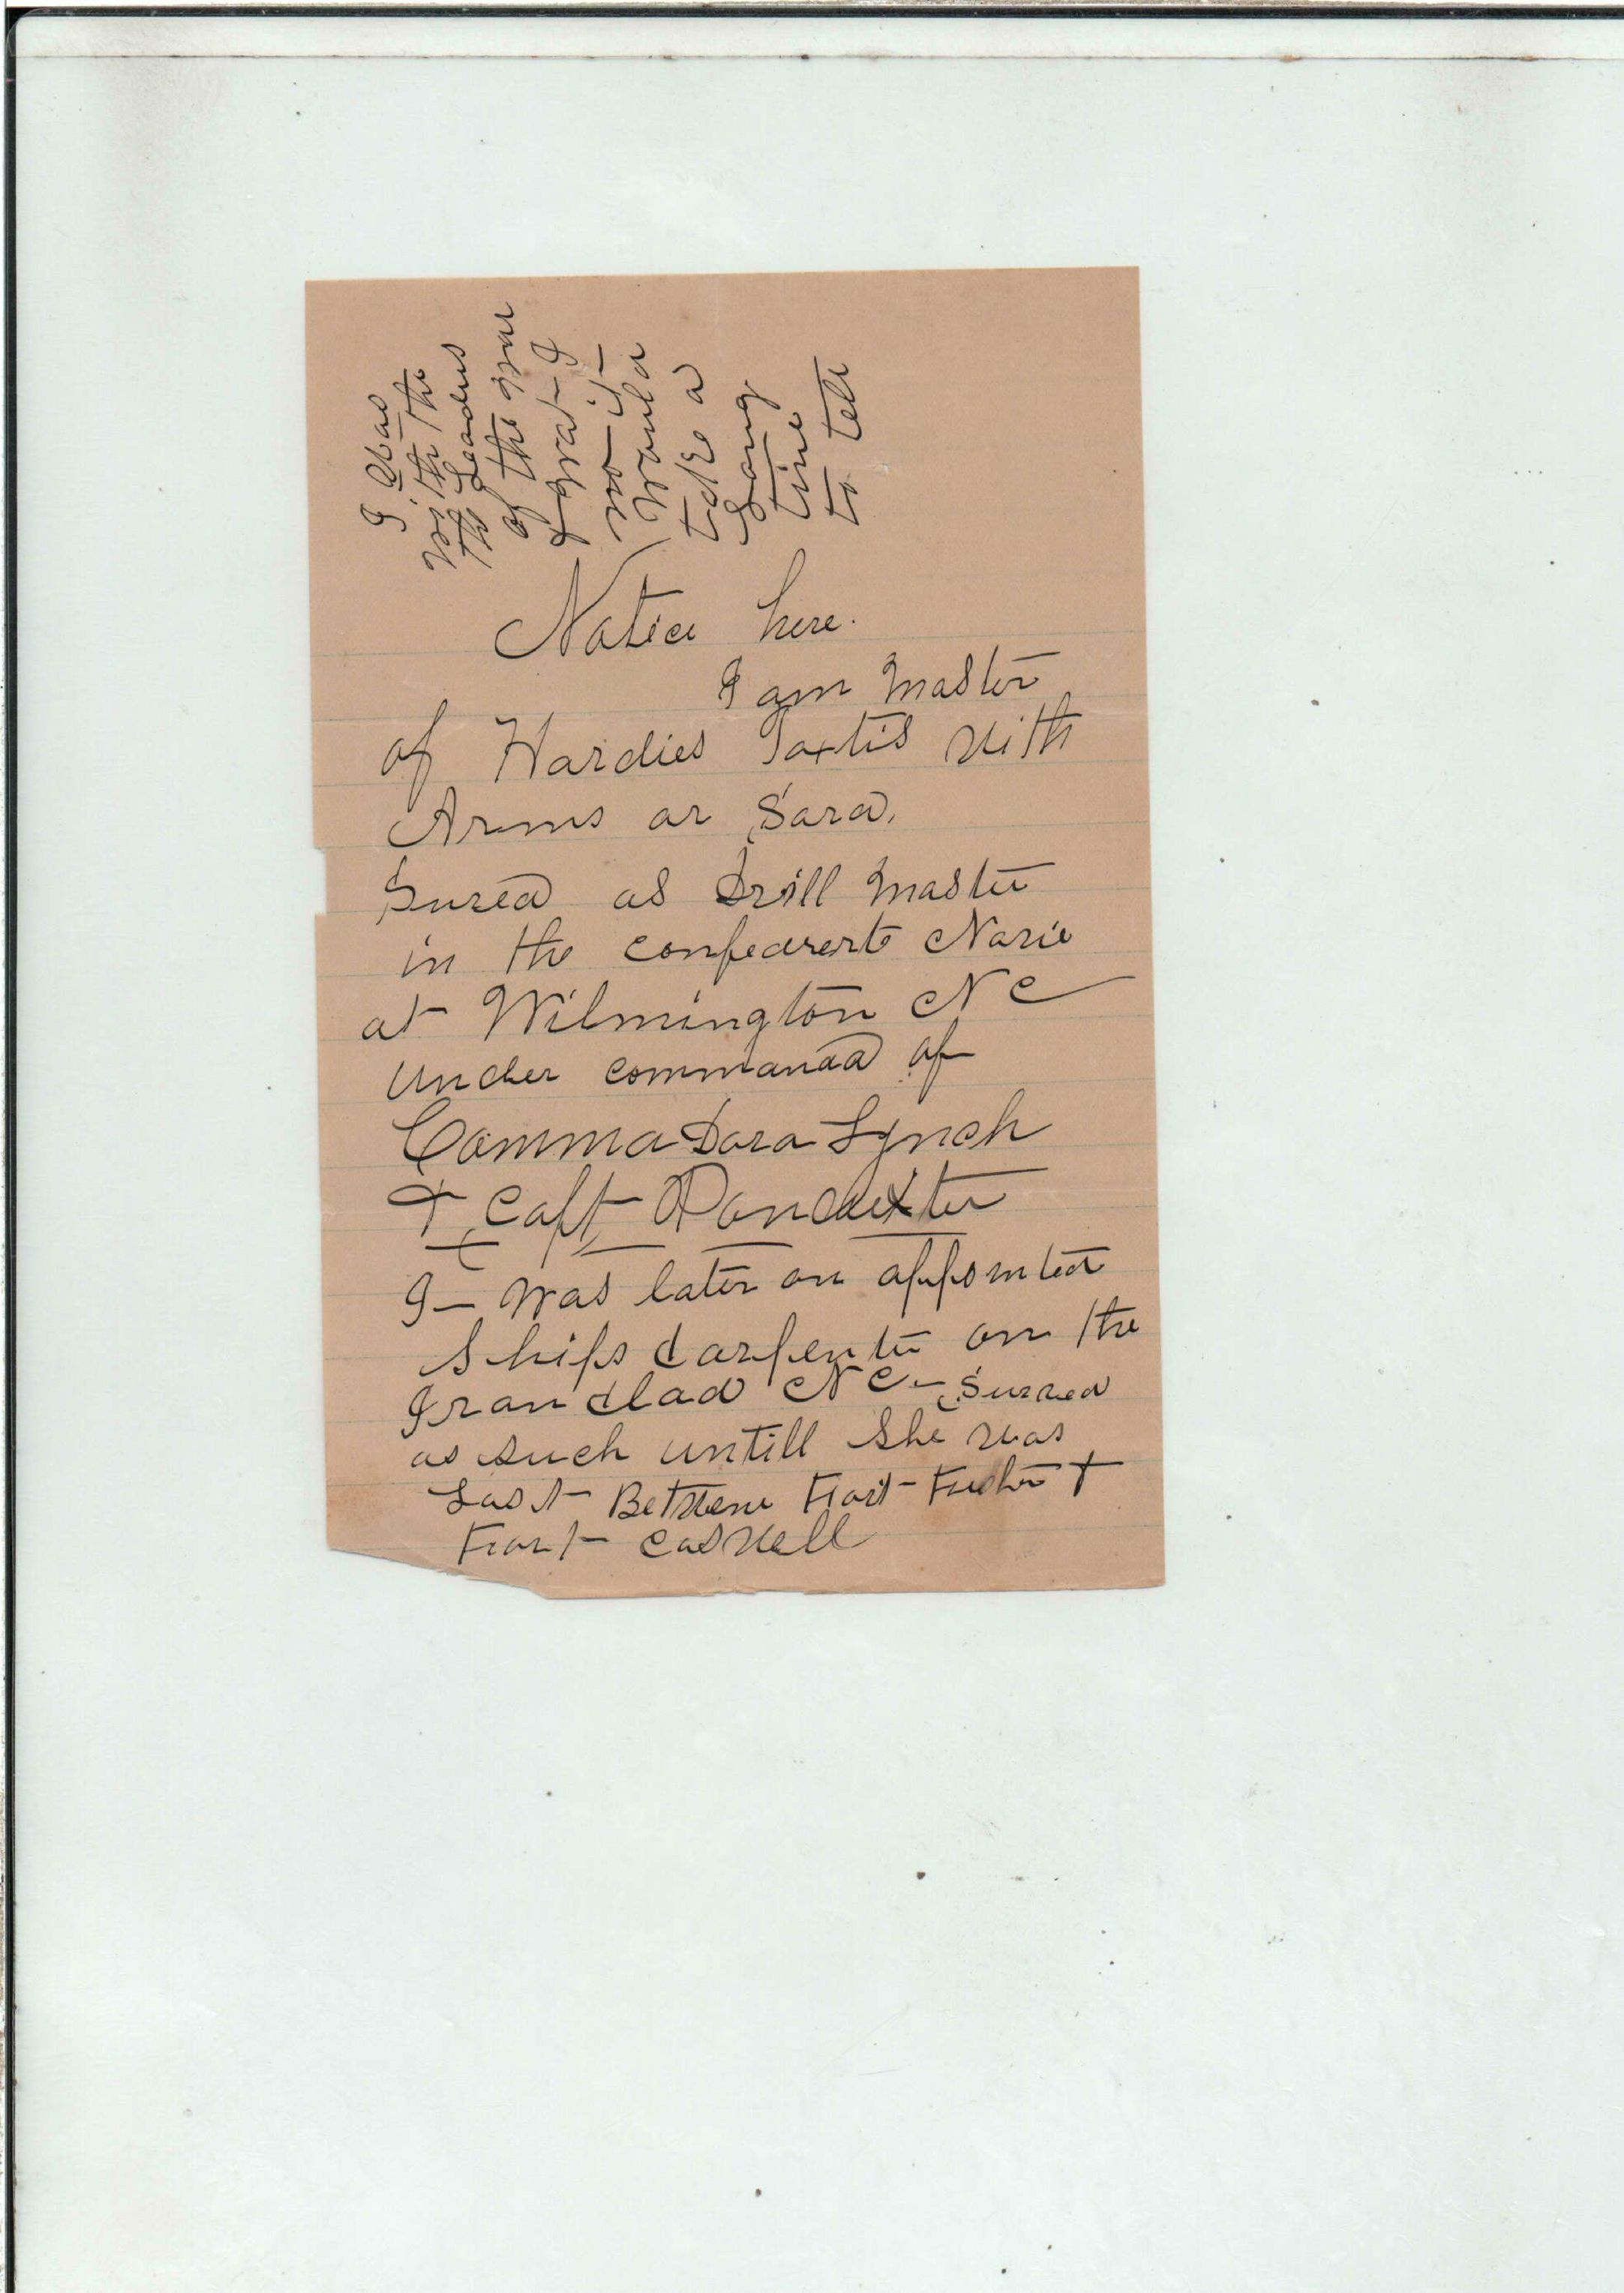 I Was
with the
the Leaders
of the War
& What I
no it
Would
take a
Long
time
to tell
Notice here.
I am Master
of Hardies Taxtis With
Arms or Sard.
Surved as Drill Master
in the confedrert Navie
at Wilmington N C
under command of
CommaDora Lynch
& Capt Pondexter
I was later on appointed
Ships Carpenter on the
Iron Clad N C Surved
as such untill she was
Lost Betwene Fort Fusher &
Fort Caswell